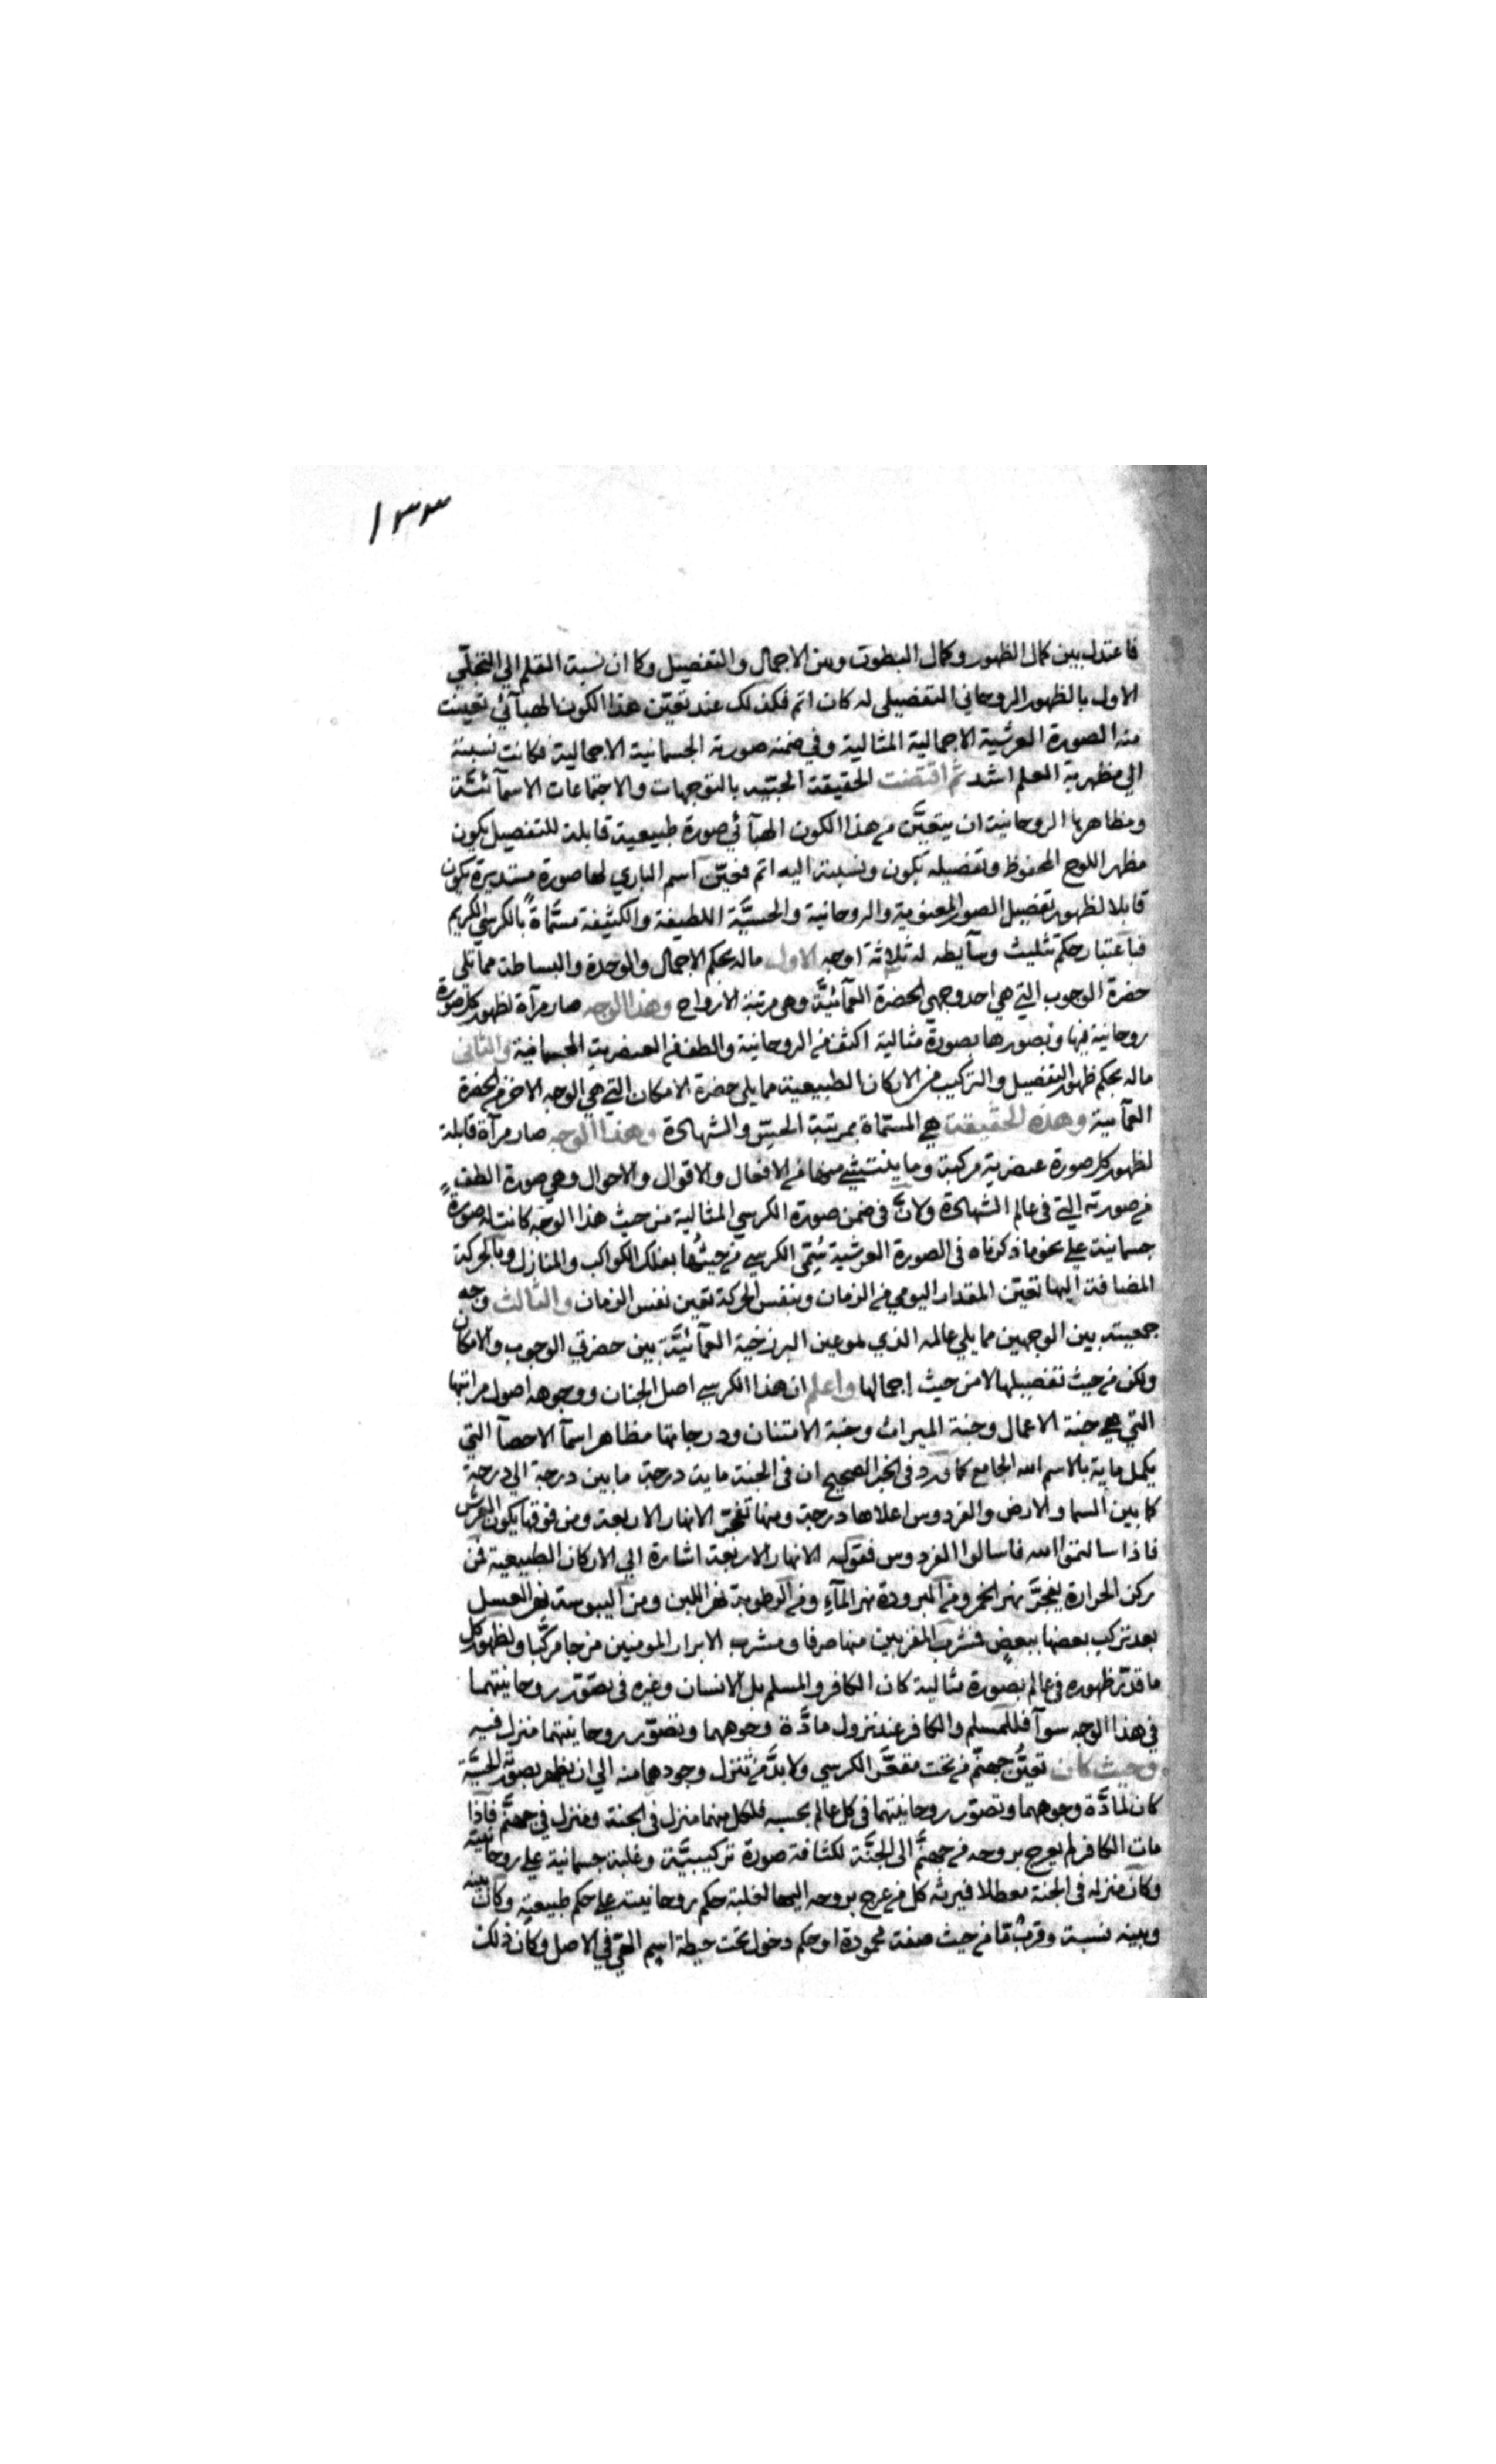 ١٣٣
فاعتدل بين كمال الظهور وكمال البطون وبين الاجمال والتفصيل وكما ان نسبت القلم الي التجلّي
الاول بالظهور الروحاني التفصيلي له كان اتم فكذلك عند تعيّن هذا الكون الهبآئي تعينت
منه الصورة العرشية الاجمالية المثالية وفي ضمنه صورته الجسمانية الاجمالية فكانت نسبته
الي مظهرية القلم اشد ثم اقتضت الحقيقة بالتوجهات والاجتماعات الاسمآئيّة
ومظاهرها الروحانية ان يتعيَّن من هذا الكون الهبآئي صورة طبيعية قابلة للتفصيل يكون
مظهر اللوح المحفوظ وتفصيله يكون ونسبته اليه اتم فعيّن اسم الباري لها صورة مستديرة يكون
قابلا لظهور تفصيل الصور المعنوية والروحانية والحسيَّة اللطيفة والكثيفة مسمَّاةً بالكرسي الكريم
فباعتبار حكم تثليث وسآيطه له ثلاثة اوجه الاول ماله بحكم الاجمال والوحدة والبساطة مما تلي
حضرة الوجوب التي هي احد وجهي الحضرة العمآئيَّة وهي مرتبة الارواح وهذا الوجه صار مرآة لظهور كل صورة
روحانية فيها وتصورها بصورة مثالية اكثف من الروحانية والطف من العنصرية الجسمانية والثاني
ماله بحكم ظهور التفصيل والتركيب من الاركان الطبيعية مما يلي حضرة الامكان التي هي الوجه الاخر من الحضرة
العمآئية وهذه الحقيقة هي المسمّاة بمرتبة الحسّ والشهادة وهذا الوجه صار مرآة قابلة
لظهور كل صورة عنصرية مركبة وما ينتشي منها من الافعال والاقوال والاحوال وهي صورة الطف
من صورته التي في عالم الشهادة ولانَّ في ضمن صورة الكرسي المثالية من حيث هذا الوجه كانت له صورةٌ
جسمانية علي نحو ما ذكرناه في الصورة العرشية سُمّي الكرسي من حيثُها بفلك الكواكب والمنازل وبالحركة
المضافة اليها تعيّن المقدار اليومي من الزمان وبنفس الحركة تعين نفس الزمان والثالث وجه
جمعيته بين الوجهين مما يلي عالمه الذي هو عين البرزخية العمآئيَّة بين حضرتي الوجوب والامكان
ولكن من حيث تفصيلها لا من حيث اجمالها واعلم ان هذا الكرسي اصل الجنان ووجوهه اصول مراتبها
التي هي جنة الاعمال وجنة الميراث وجنة الامتنان ودرجاتها مظاهر اسمآ الاحصآ التي
يكمل ماية بالاسم الله الجامع كما ورد في الخبر الصحيح ان في الجنة ماية درجة ما بين درجة الي درجة
كما بين السما والارض والفردوس اعلاها درجة ومنها تفجّر الانهار الاربعة ومن فوقها يكون العرش
فاذا سالتموا الله فاسالوا الفردوس فقوله الانهار الاربعة اشارة الي الاركان الطبيعية فمن
ركن الحرارة يفجَّر نهر الخمر ومن البرودة نهر المآء ومن الرطوبة نهر اللبن ومن اليبوسة نهر العسل
بعد تركب بعضها ببعضٍ فشرب المقربين منها صرفا ومشرب الابرار المومنين مزجا مركَّبا ولظهور كل
ما قدّر ظهوره في عالم بصورة مثالية كان الكافر والمسلم بل الانسان وغيره في تصوّر روحانيتهما
في هذا الوجه سوآ فللمسلم والكافر عند نزول مادَّة وجوهما وتصوّر روحانيتهما منزل فيه
وحيث كان تعيُّن جهنّم من تحت مقعَّر الكرسي ولا بدَّ من تنزل وجودهما منه الي ان يظهر بصورته الحسيَّة
كان لمادَّة وجوهما وتصوّر روحانيتهما في كل عالم بحسبه فلكل منهما منزل في الجنة ومنزل في جهنَّم فاذا
مات الكافر لم يعرج بروحه من جهنَّم الى الجنَّة لكثافة صورة تركيبيَّة وغلبة جسمانية علي روحانيته
وكان منزله في الجنة معطلا فيرثه كل من عرج بروحه اليها لغلبة حكم روحانيته علي حكم طبيعتهِ وكان بينه
وبينه نسبة وقربٌ ما من حيث صفة محمودة او حكم دخول تحت حيطة اسم الهي في الاصل وكان ذلك